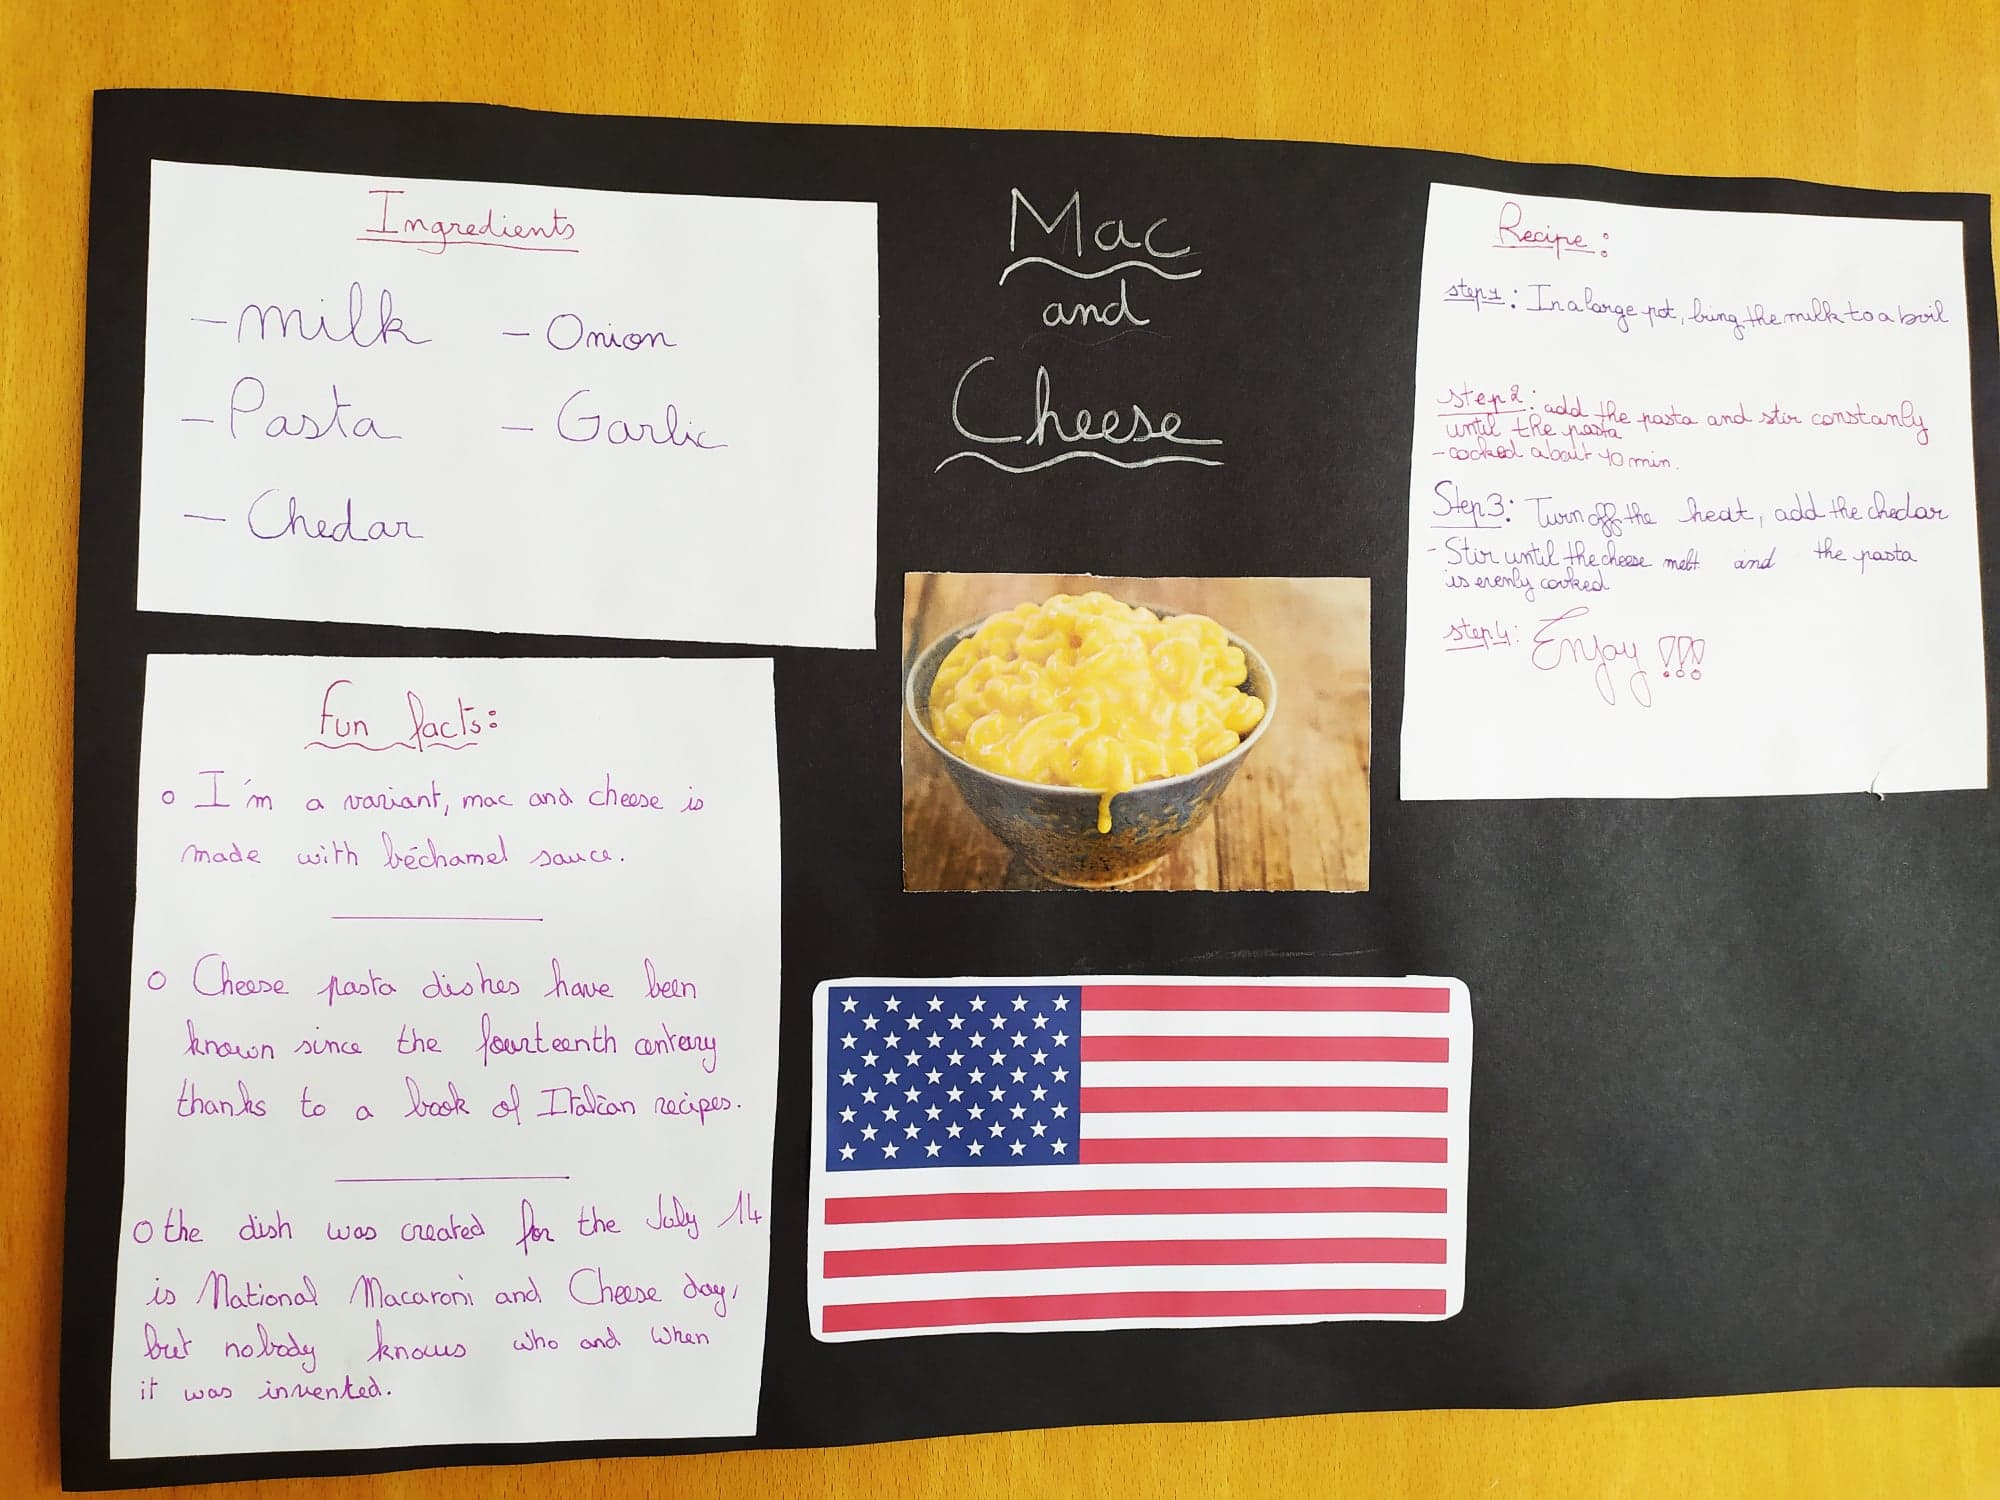 Mac
and
Cheese
Ingredients
- milk
- Pasta
- Chedar
- Onion
- Garlic
Fun facts:
o I'm a variant, mac and cheese is
made with béchamel sauce.
o Cheese pasta dishes have been
known since the fourteenth century
thanks to a book of Italian recipes.
o the dish was created for the July 14
is National Macaroni and Cheese day,
but nobody knows who and when
it was invented.
Recipe:
step1: In a large pot, bring the milk to a boil
step2: add the pasta and stir constancly
until the pasta
- cocked about 10 min.
Step3: Turn off the heat, add the chedar
- Stir until the cheese melt and the pasta
is evenly cooked
step4: Enjoy !!!